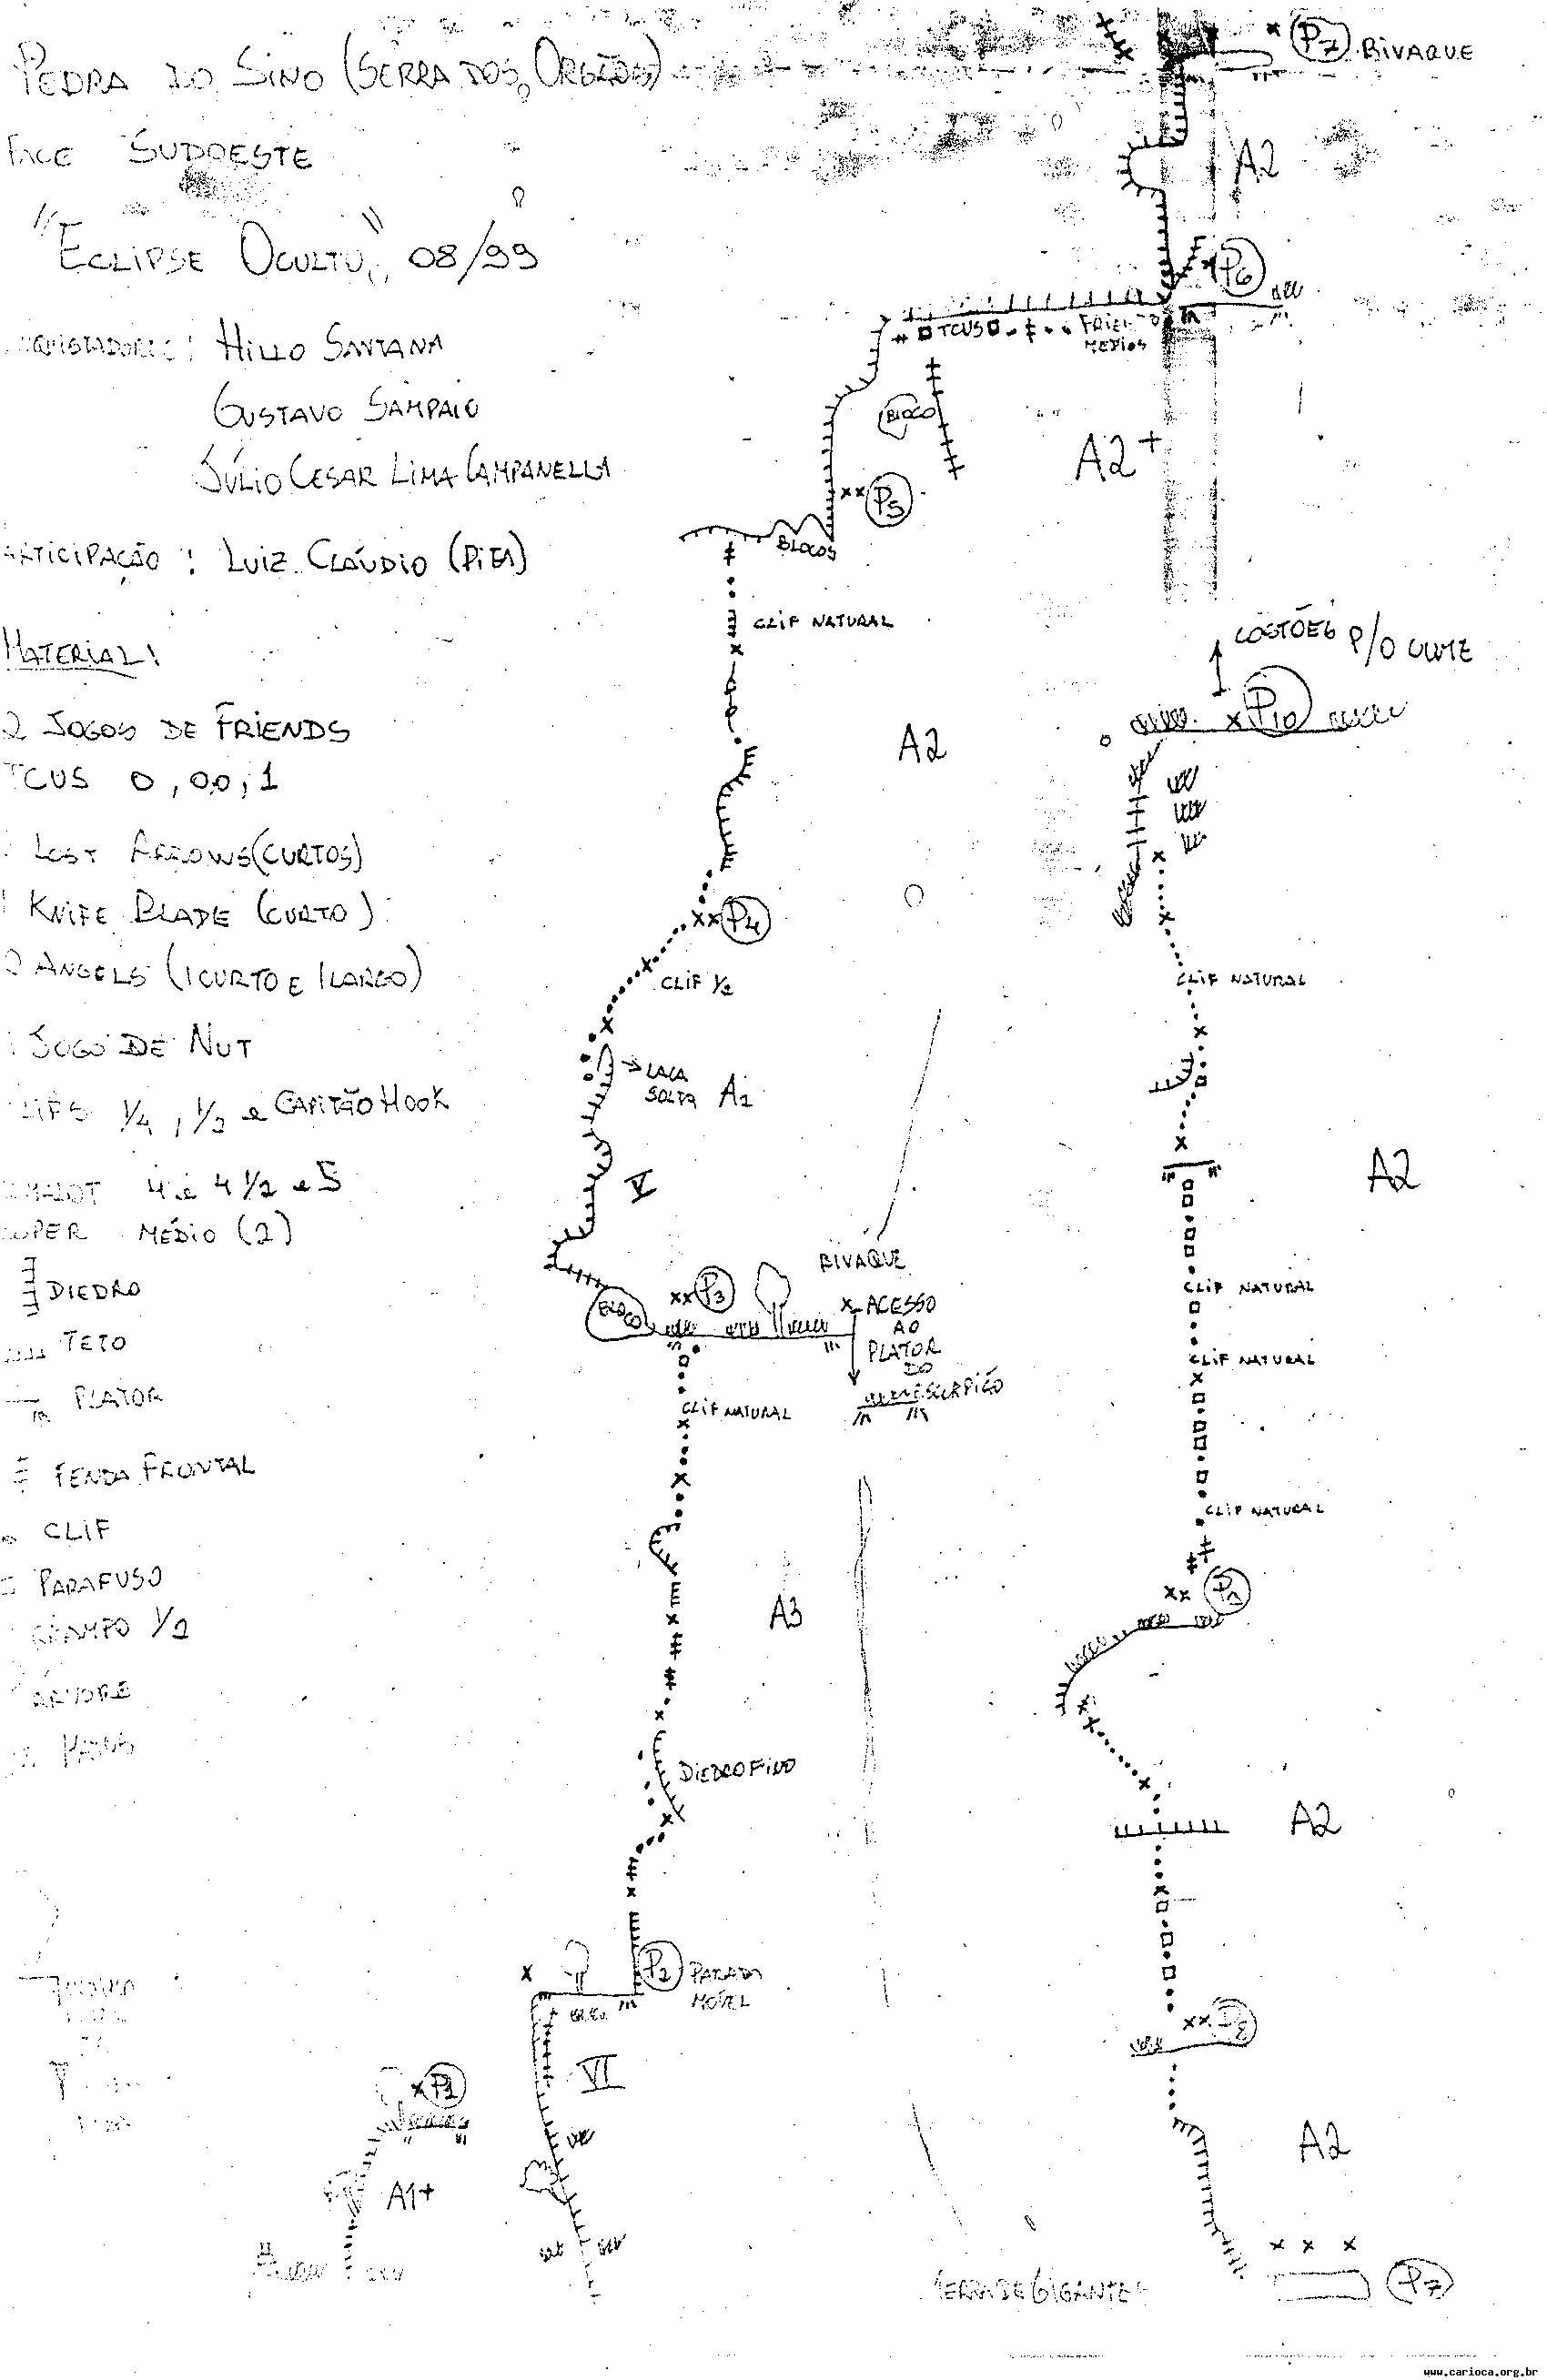 PEDRA DO SINO (SERRA DOS ORGÃOS)
FACE SUDOESTE
"ECLIPSE OCULTO", 08/99
HILLO SANTANA
GUSTAVO SAMPAIO
JÚLIO CESAR LIMA CAMPANELLA
PARTICIPAÇÃO: LUIZ CLÁUDIO (PITA)
MATERIAL:
2 JOGOS DE FRIENDS
TCUS 0, 00, 1
LOST ARROWS (CURTOS)
KNIFE BLADE (CURTO)
2 ANGELS (1 CURTO E 1 LARGO)
JOGO DE NUT
CLIFS 1/4, 1/2 e CAPITÃO HOOK
4 e 4 1/2 e 5
MÉDIO (2)
DIEDRO
TETO
PLATOR
FENDA FRONTAL
CLIF
PARAFUSO
GRAMPO 1/2
ARVORE
P7 BIVAQUE
A2
P6
TCUS
FRIENDS
MEDIOS
BLOCO
A2+
P5
BLOCOS
CLIF NATURAL
A2
P4
CLIF 1/2
LACA
SOLTA
A1
V
P3
BLOCO
BIVAQUE
ACESSO
AO
PLATOR
DO
ESCORPIÃO
CLIF NATURAL
A3
DIEDRO FINO
P2 PARADA
MÓVEL
VI
P1
A1+
COSTÕES P/O CUME
P10
CLIF NATURAL
A2
CLIF NATURAL
CLIF NATURAL
CLIF NATURAL
P9
A2
P8
A2
P7
TERRA DE GIGANTES
www.carioca.org.br